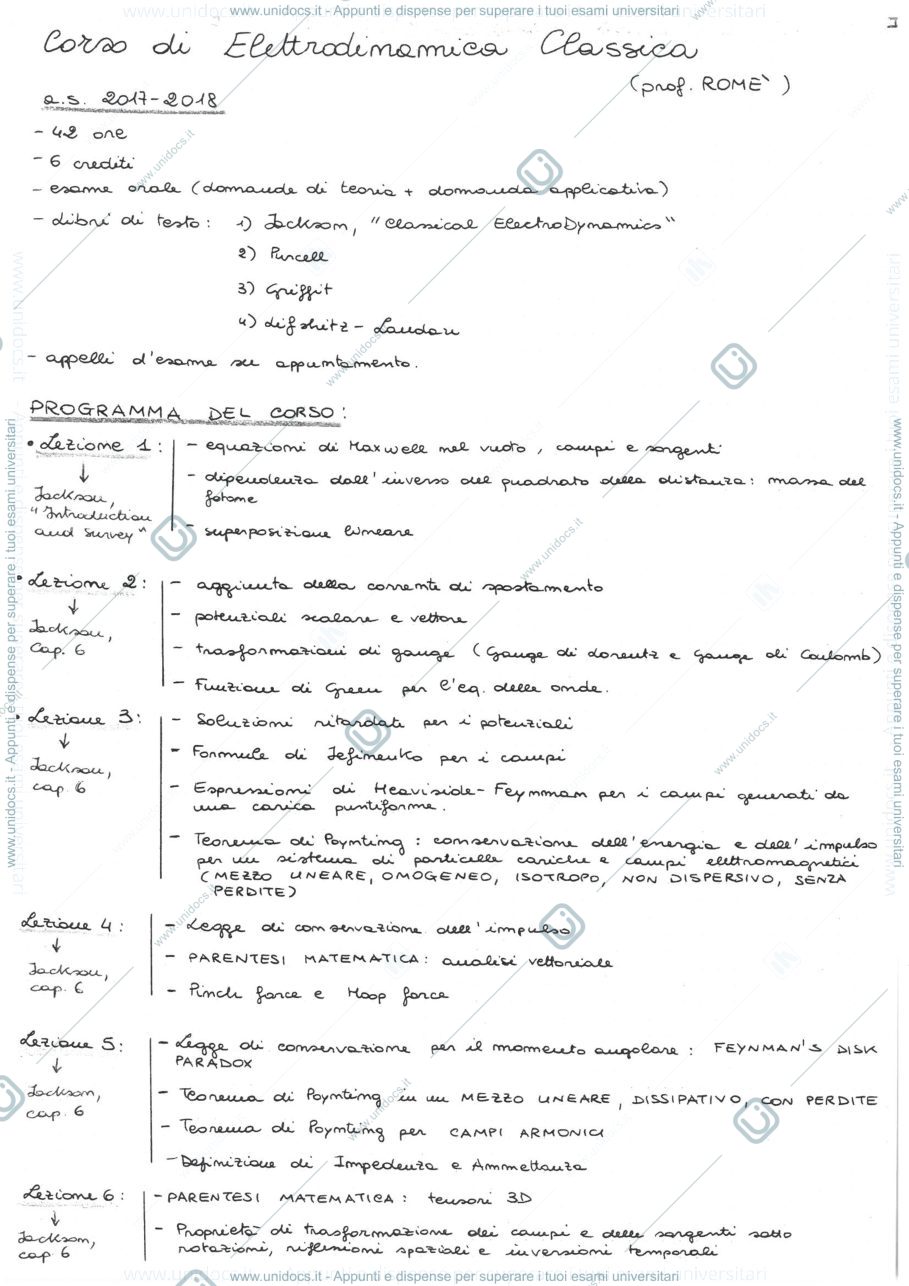 www.unidocs.it - Appunti e dispense per superare i tuoi esami universitari
Corso di Elettrodinamica Classica
(prof. ROME')
a.s. 2017-2018
- 42 ore
- 6 crediti
- esame orale (domande di teoria + domanda applicativa)
- Libri di testo: 1) Jackson, "Classical ElectroDynamics"
2) Purcell
3) Griffit
4) Lifshitz - Landau
- appelli d'esame su appuntamento.
PROGRAMMA DEL CORSO:
• Lezione 1: - equazioni di Maxwell nel vuoto, campi e sorgenti
↓ - dipendenza dall'inverso del quadrato della distanza: massa del
Jackson, fotone
"Introduction
and Survey" - superposizione lineare
• Lezione 2: - aggiunta della corrente di spostamento
↓ - potenziali scalare e vettore
Jackson,
Cap. 6 - trasformazioni di gauge (Gauge di Lorentz e Gauge di Coulomb)
- Funzione di Green per l'eq. delle onde.
• Lezione 3: - Soluzioni ritardati per i potenziali
↓ - Formule di Jefimenko per i campi
Jackson,
cap. 6 - Espressioni di Heaviside-Feynman per i campi generati da
una carica puntiforme.
- Teorema di Poynting: conservazione dell'energia e dell'impulso
per un sistema di particelle cariche e campi elettromagnetici
(MEZZO LINEARE, OMOGENEO, ISOTROPO, NON DISPERSIVO, SENZA
PERDITE)
Lezione 4: - Legge di conservazione dell'impulso
↓ - PARENTESI MATEMATICA: analisi vettoriale
Jackson,
cap. 6 - Pinch force e Hoop force
Lezione 5: - Legge di conservazione per il momento angolare: FEYNMAN'S DISK
↓ PARADOX
Jackson, - Teorema di Poynting in un MEZZO LINEARE, DISSIPATIVO, CON PERDITE
cap. 6
- Teorema di Poynting per CAMPI ARMONICI
- Definizione di Impedenza e Ammettanza
Lezione 6: - PARENTESI MATEMATICA: tensori 3D
↓
Jackson, - Proprietà di trasformazione dei campi e delle sorgenti sotto
cap 6 rotazioni, riflessioni spaziali e inversioni temporali
www.unidocs.it - Appunti e dispense per superare i tuoi esami universitari